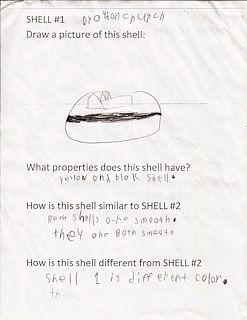 SHELL #1
Draw a picture of this shell:
What properties does this shell have?
yellow and blak shell.
How is this shell similar to SHELL #2
both shells are smooth.
they are Both smooth
How is this shell different from SHELL #2
shell 1 is different color.